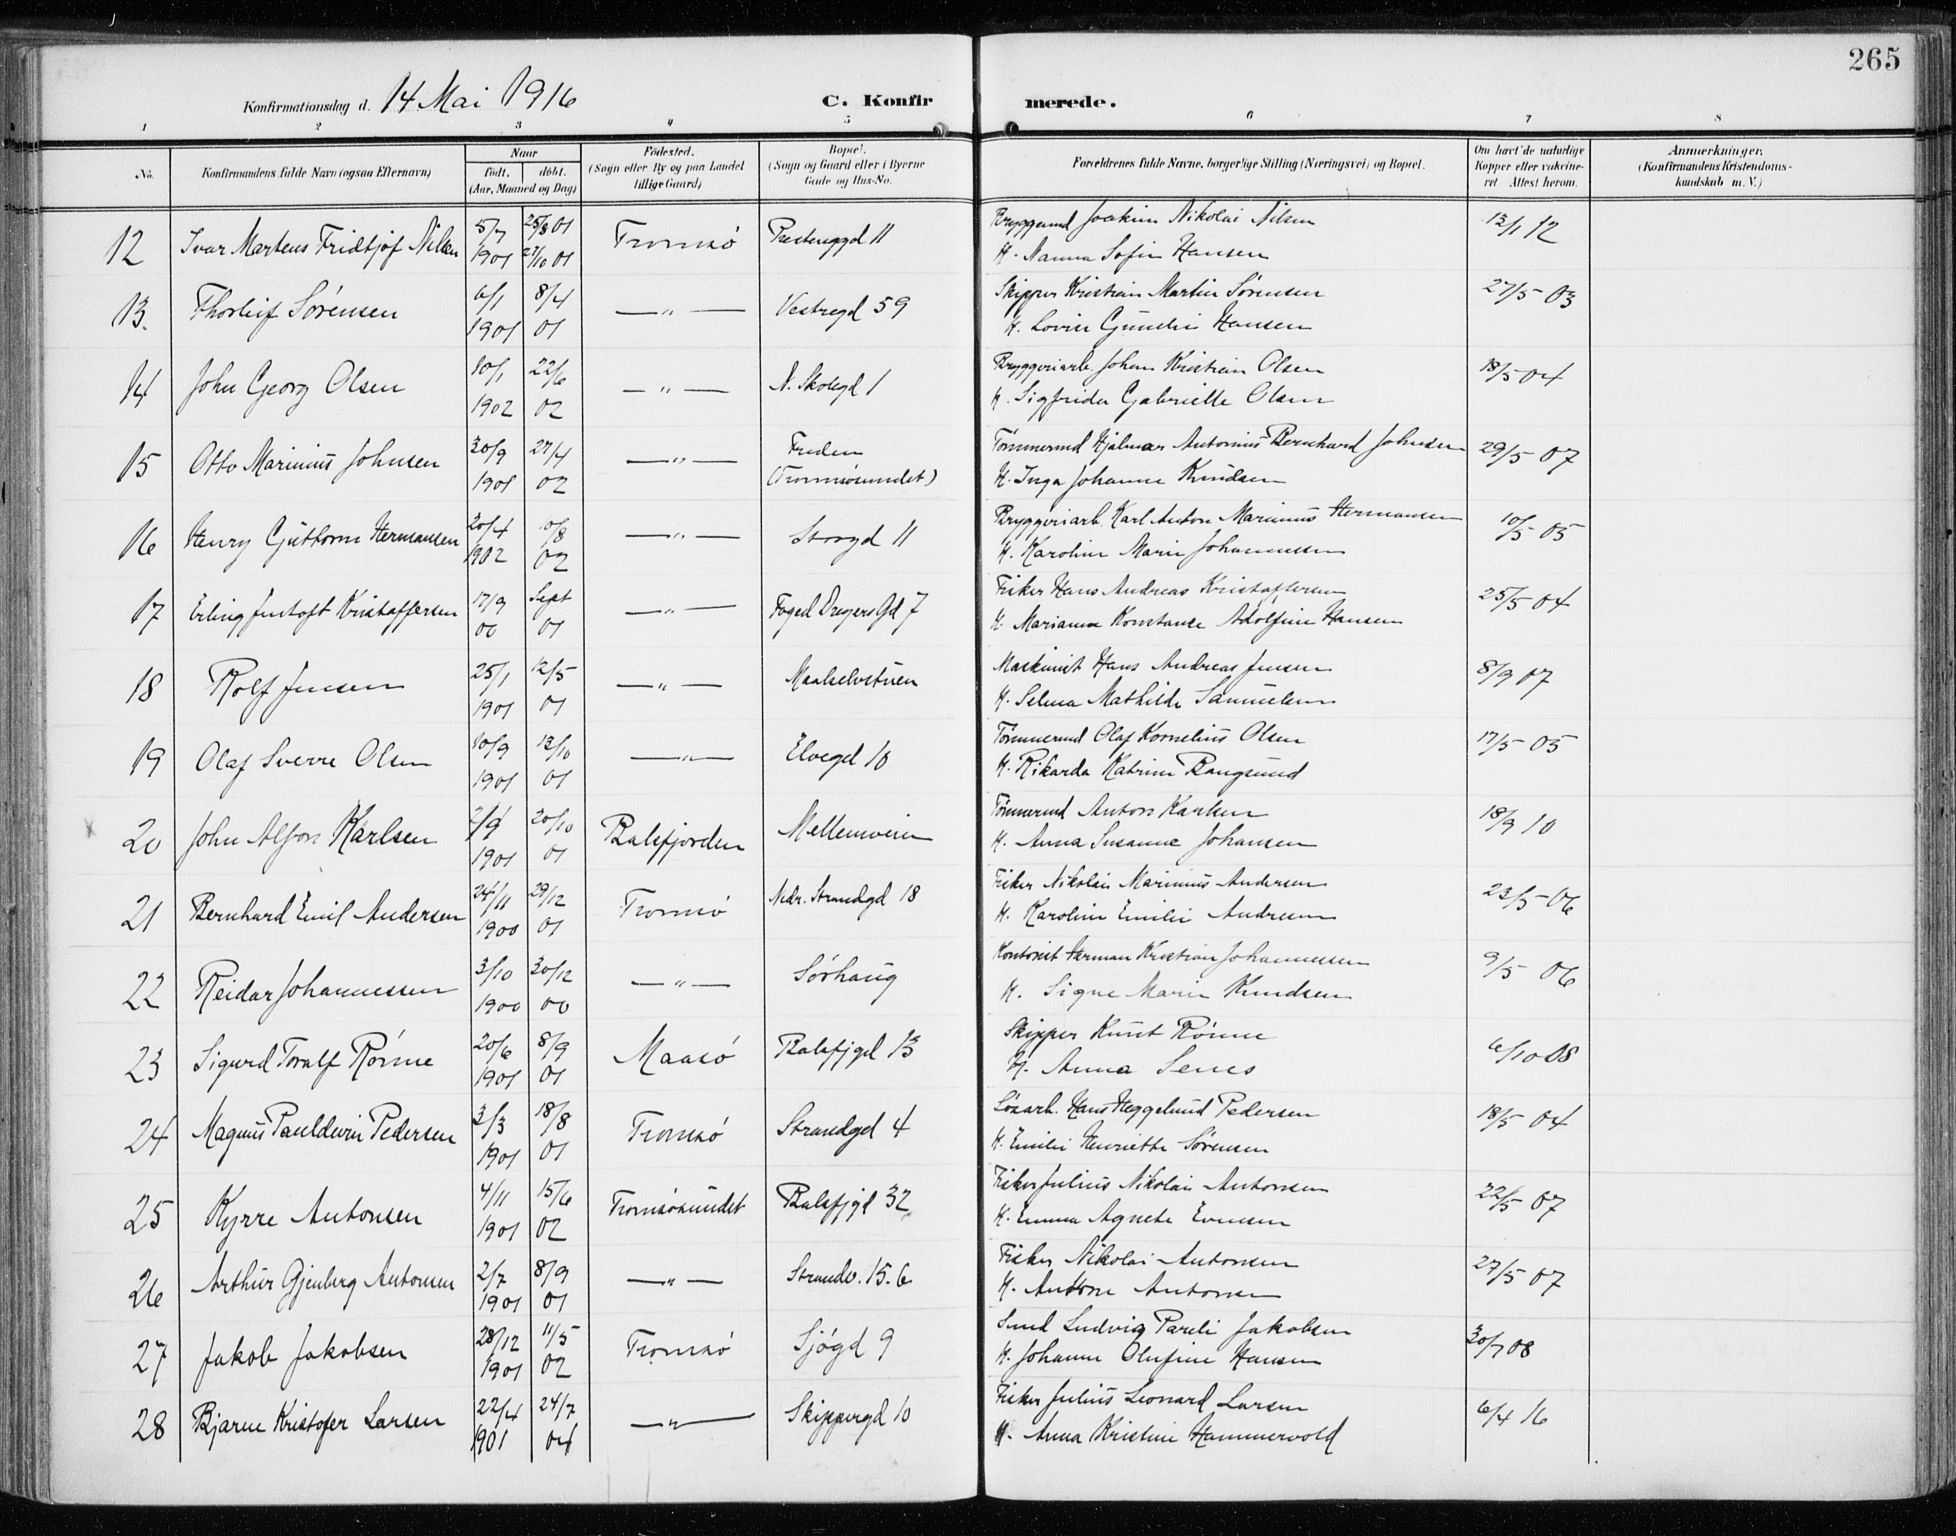 265
Konfirmationsdag d. 14 Mai 1916 C. Konfirmerede.
1 2 3 4 5 6 7 8
No. Konfirmandens fulde Navn (ogsaa Efternavn) Naar födt. döbt. (Aar, Maaned og Dag) Födested. (Sogn eller By og paa Landet tillige Gaard) Bopæl. (Sogn og Gaard eller i Byerne Gade og Hus-No. Forældrenes fulde Navne, borgerlige Stilling (Næringsvei) og Bopæl. Om havt de naturlige Kopper eller vakcineret. Attest herom. Anmærkninger. (Konfirmandens Kristendomskundskab m. V.)
12 Ivar Martens Fridtjof Nilsen 5/7 1901 25/8 01 27/10 01 Tromsø 11 Joakim Nikolai Nilsen 13/1 12
H. Nanna Sofie Hansen
13. Thorleif Sørensen 6/1 1901 8/4 01 —„— Vestregd 59 Skipper Kristian Martin Sørensen 27/5 03
H. Hansen
14 John Georg Olsen 10/1 1902 22/6 02 —„— N. Skolegd 1 Bryggeriarb. Johan Kristian Olsen 18/5 04
H. Sigfrida Gabrielle Olsen
15 Otto Marinius Johnsen 30/9 1901 27/4 02 —„— (Tromsøsundet) Tømmermd Hjalmar Antonius Bernhard Johnsen 29/5 07
H. Inga Johanne Knudsen
16 Henry Guttorm Hermansen 20/4 1902 10/8 02 —„— Storgd 11 Bryggeriarb. Karl Anton Marinius Hermansen 10/5 05
H. Karoline Marie Johannessen
17 Erling Jentoft Kristoffersen 17/9 00 Sept 01 —„— Foged Dreyers Gd 7 Fisker Hans Andreas Kristoffersen 25/5 04
H. Marianna Konstanse Adolfine Hansen
18 Rolf Jensen 25/1 1901 12/5 01 —„— Maskinist Hans Andreas Jensen 8/9 07
H. Selma Mathilde Samuelsen
19 Olaf Sverre Olsen 10/9 1901 13/10 01 —„— Elvegd 10 Tømmermd Olaf Kornelius Olsen 17/5 05
H. Rikarda Katrine Bangsund
20 John Alfon Karlsen 2/9 1901 20/10 01 Balsfjorden Mellemveien Tømmermd Anton Karlsen 18/9 10
H. Anna Susanne Johansen
21 Bernhard Emil Andersen 24/11 1900 29/12 01 Tromsø Nedr. Strandgd 18 Fisker Nikolai Marinius Andersen 23/5 06
H. Karoline Emilie Andresen
22 Reidar Johannessen 3/10 1900 30/12 00 —„— Sørhaug Kontorist Herman Kristian Johannessen 9/5 06
H. Signe Marie Knudsen
23 Sigurd Toralf Rønne 20/6 1901 8/9 01 Maasø Balsfjgd 13 Skipper Knut Rønne 6/10 08
H. Anna
24 Magnus Pauldwin Pedersen 3/3 1901 18/8 01 Tromsø Strandgd 4 Hans Heggelund Pedersen 18/5 04
H. Emilie Henriette Sørensen
25 Kyrre Antonsen 4/11 1901 15/6 02 Tromsøsundet Balsfjgd 32 Fisker Julius Nikolai Antonsen 22/5 07
H. Emma Agnete Evensen
26 Arthur Gjenberg Antonsen 2/7 1901 8/9 01 —„— Strandv. 15.6 Fisker Nikolai Antonsen 27/5 07
H. Antonsen
27 Jakob Jakobsen 28/12 1901 11/5 02 Tromsø Sjøgd 9 Smed Ludvig Pareli Jakobsen 30/7 08
H. Johanne Olufine Hansen
28 Bjarne Kristofer Larsen 22/4 1901 24/7 04 —„— Skippergd 10 Fisker Julius Leonard Larsen 6/4 16
H. Anna Kristine Hammervold